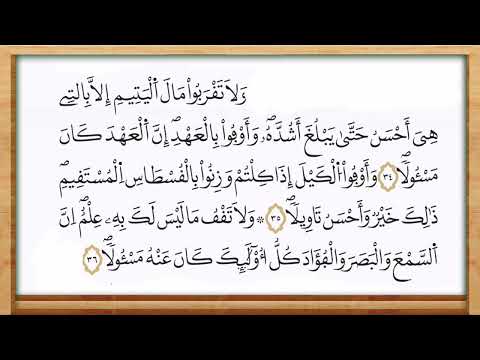 وَلَا تَقْرَبُواْ مَالَ اَلْيَتِيمِ إِلَّا بِالتِے
هِيَ أَحْسَنُ حَتَّىٰ يَبْلُغَ أَشُدَّهُۥۖ وَأَوْفُواْ بِالْعَهْدِۖ إِنَّ اَلْعَهْدَ كَانَ
مَسْـُٔولاٗۖ ٣٤ وَأَوْفُواْ اُلْكَيْلَ إِذَا كِلْتُمْ وَزِنُواْ بِالْقُسْطَاسِ اِلْمُسْتَقِيمِۖ
ذَٰلِكَ خَيْرٞ وَأَحْسَنُ تَاوِيلاٗۖ ٣٥ ۞ وَلَا تَقْفُ مَا لَيْسَ لَكَ بِهِۦ عِلْمٌۖ إِنَّ
اَلسَّمْعَ وَالْبَصَرَ وَالْفُؤَادَ كُلُّ أُوْلَٰٓئِكَ كَانَ عَنْهُ مَسْـُٔولاٗۖ ٣٦